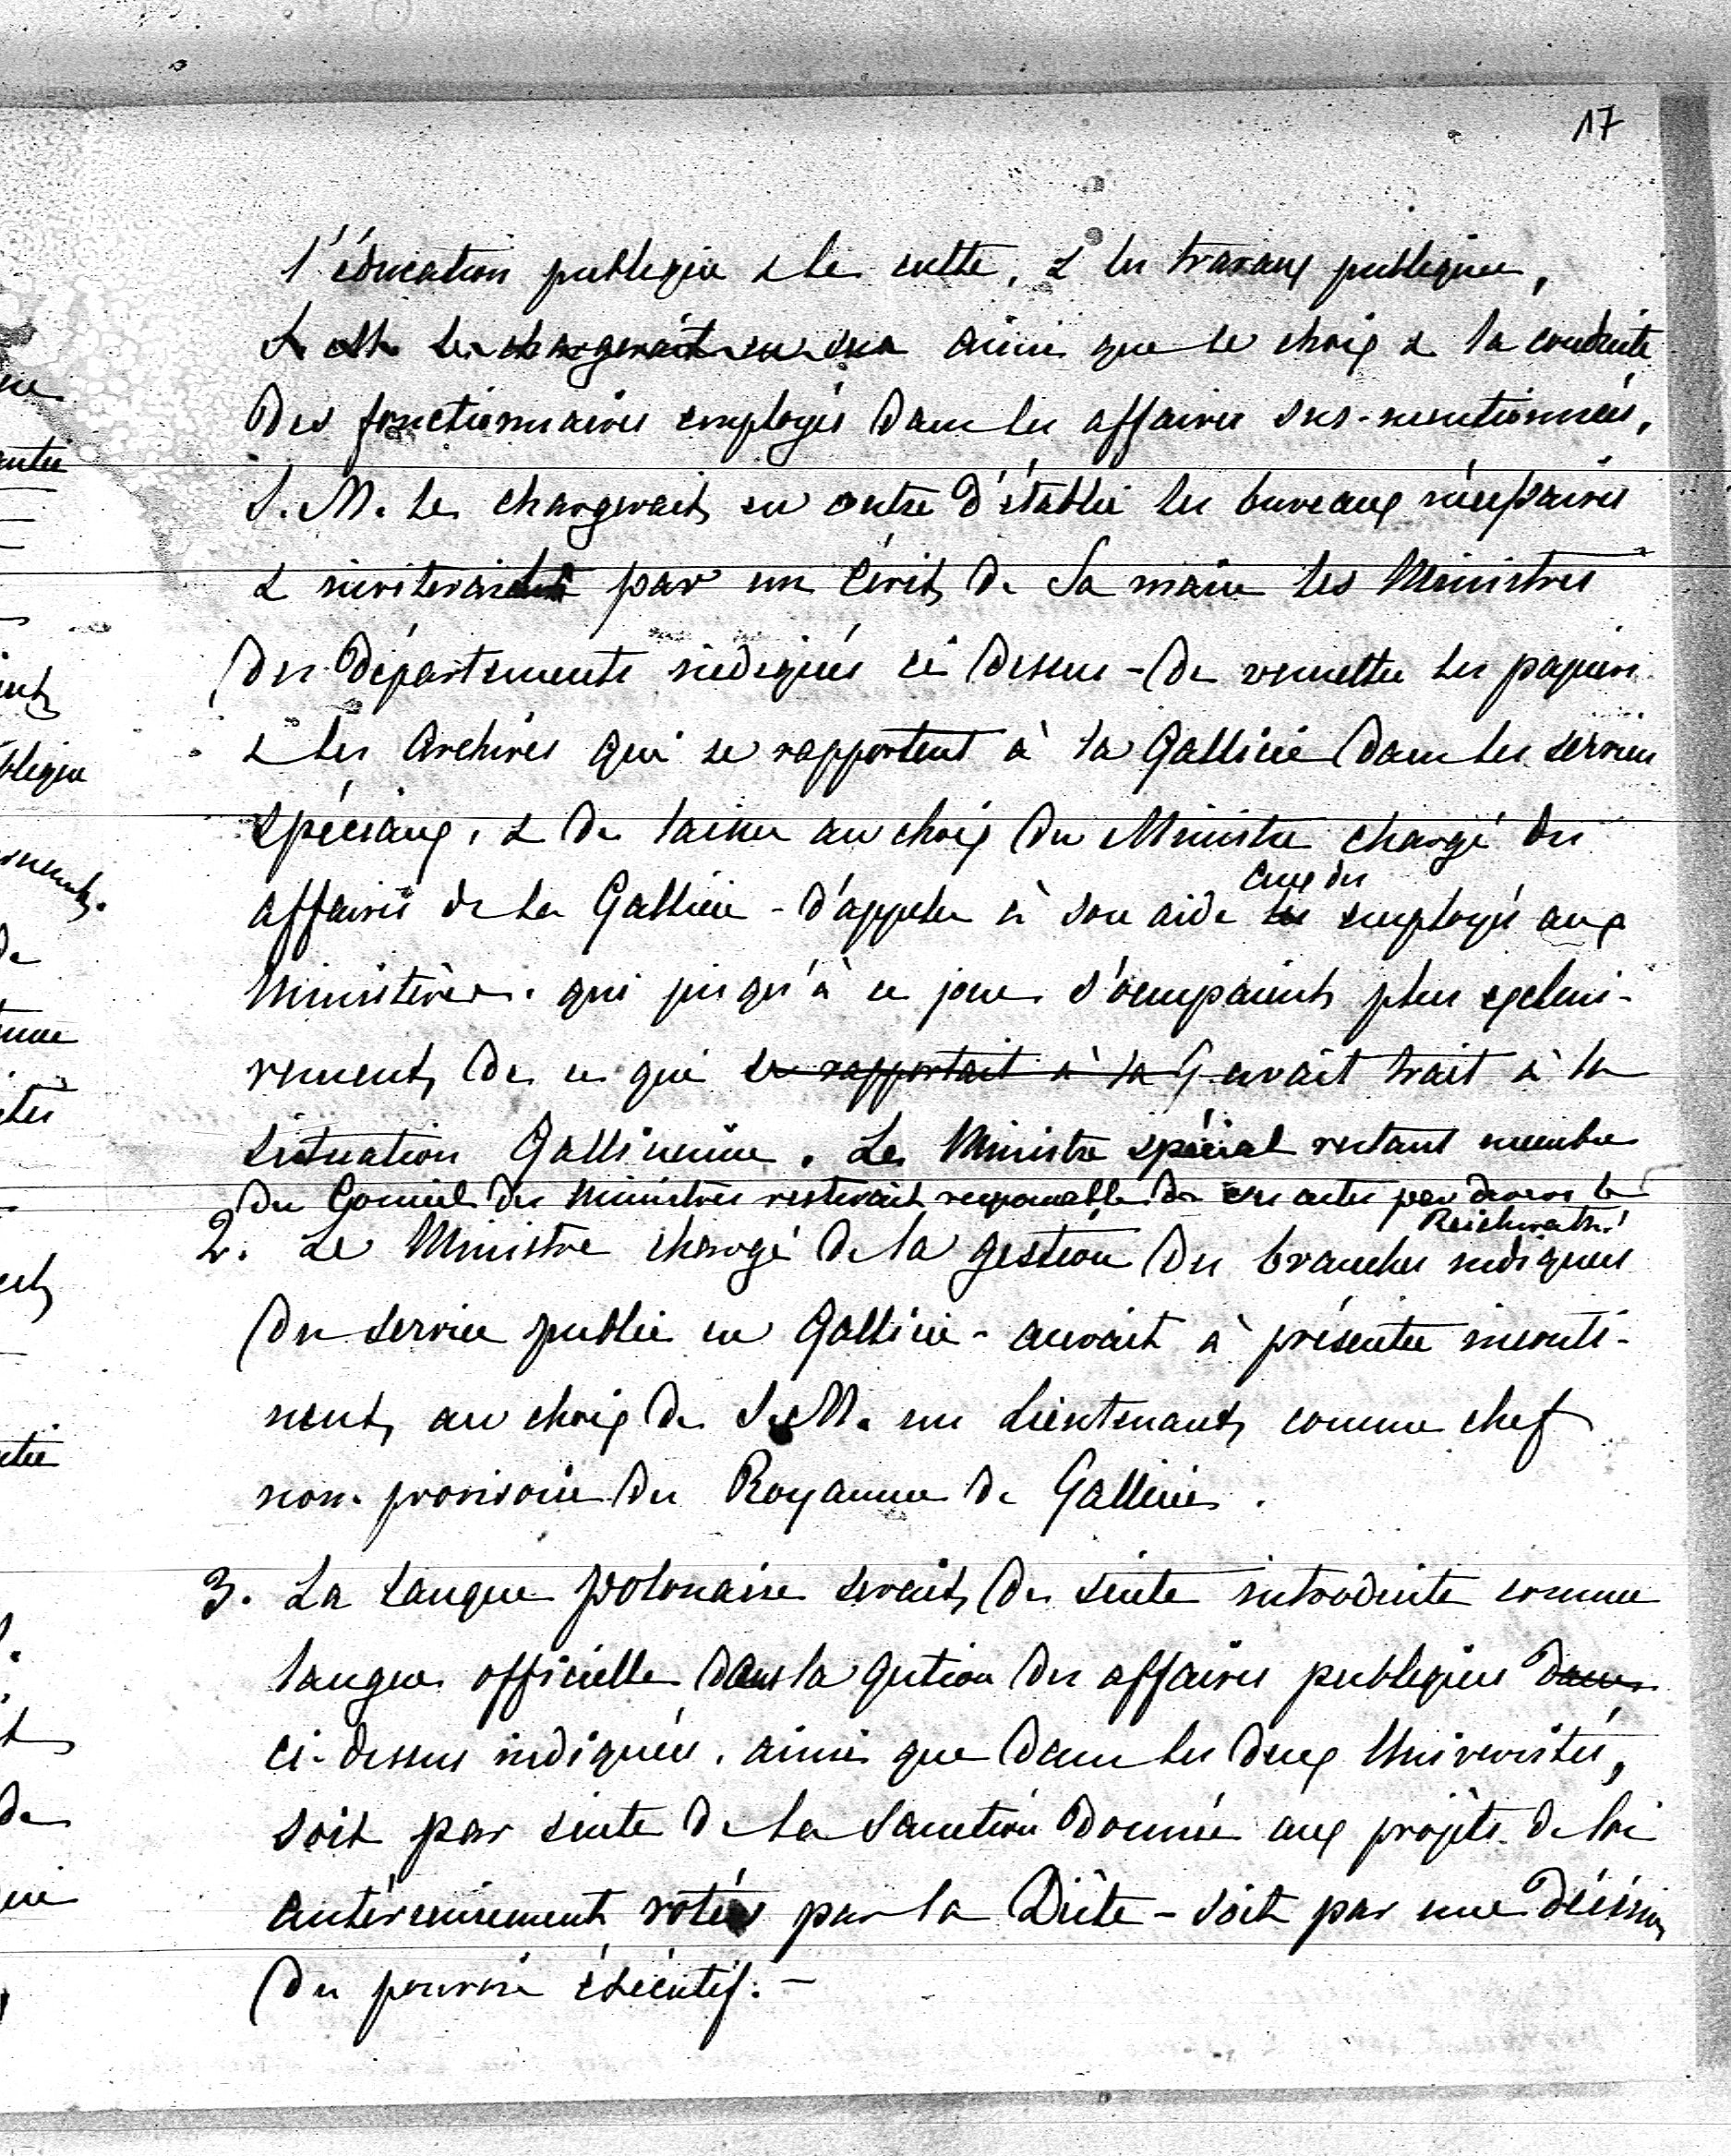 17
l'éducation publique & le culte, & les travaux publiques,
& elle les chargerait en ainsi que le choix & la conduite
des fonctionnaires employés dans les affaires sus-mentionnées,
S. M. le chargerait en outre d'établir les bureaux nécessaires
& inviterait par un écrit de Sa main les Ministres
des Départements indiqués ci dessus - de remettre les papiers
& les Archives qui se rapportent à la Gallicie dans les services
spéciaux, & de laisser au choix du Ministre chargé des
affaires de la Gallicie - d'appeler à son aide les ceux des employés aux
Ministères. qui jusqu'à ce jour s'occupaient plus exclusi-
vement de ce qui se rapportait à la G avait trait à la
situation Gallicienne. Le Ministre spécial restant membre
du Conseil des Ministres resterait responsable de ses actes par devers le
Reichsrath.
2. Le Ministre chargé de la gestion des branches indiquées
du service public en Gallicie - aurait à présenter inconti-
nent au choix de S. M. un Lieutenant comme chef
non-provisoire du Royaume de Gallicie.
3. La langue polonaise serait de suite introduite comme
langue officielle dans la gestion des affaires publiques dans
ci-dessus indiquées, ainsi que dans les deux Universités,
soit par suite de la Sanction donnée aux projèts de loi
antérieurement votés par la Diète - soit par une décision
du pouvoir éxécutif. -